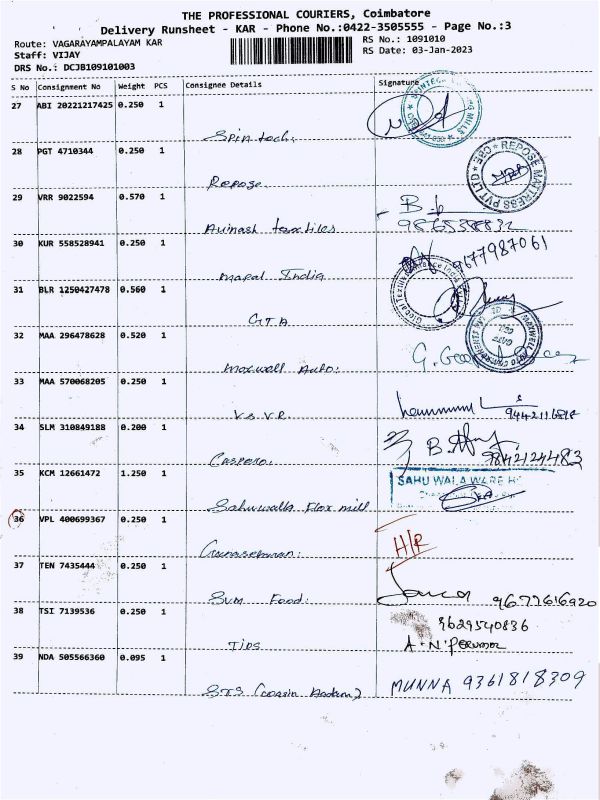 THE PROFESSIONAL COURIERS, Coimbatore
Delivery Runsheet - KAR - Phone No.:0422-3505555 - Page No.:3
Route: VAGARAYAMPALAYAM KAR
RS No.: 1091010
Staff: VIJAY
RS Date: 03-Jan-2023
DRS No.: DCJB109101003
S No Consignment No Weight PCS Consignee Details Signature
27 ABI 20221217425 0.250 1
Spin tech.
28 PGT 4710344 0.250 1
REPOSE MATTRESS PVT LTD
Repose
29 VRR 9022594 0.570 1
Avinash textiles
30 KUR 558528941 0.250 1
9677987061
Magal India
31 BLR 1250427478 0.560 1
GTA
32 MAA 296478628 0.520 1
Maxwell Auto.
33 MAA 570068205 0.250 1
V.S.V.R.
34 SLM 310849188 0.200 1
9842124483
Caspero.
35 KCM 12661472 1.250 1
SAHUWALA WARE
Sahuwalla Flex mill
36 VPL 400699367 0.250 1
H/R
Gunasekaran.
37 TEN 7435444 0.250 1
Svm Food.
9677616920
38 TSI 7139536 0.250 1
9629540836
Tips
A.N.Perumal
39 NDA 505566360 0.095 1
MUNNA 9361818309
STS